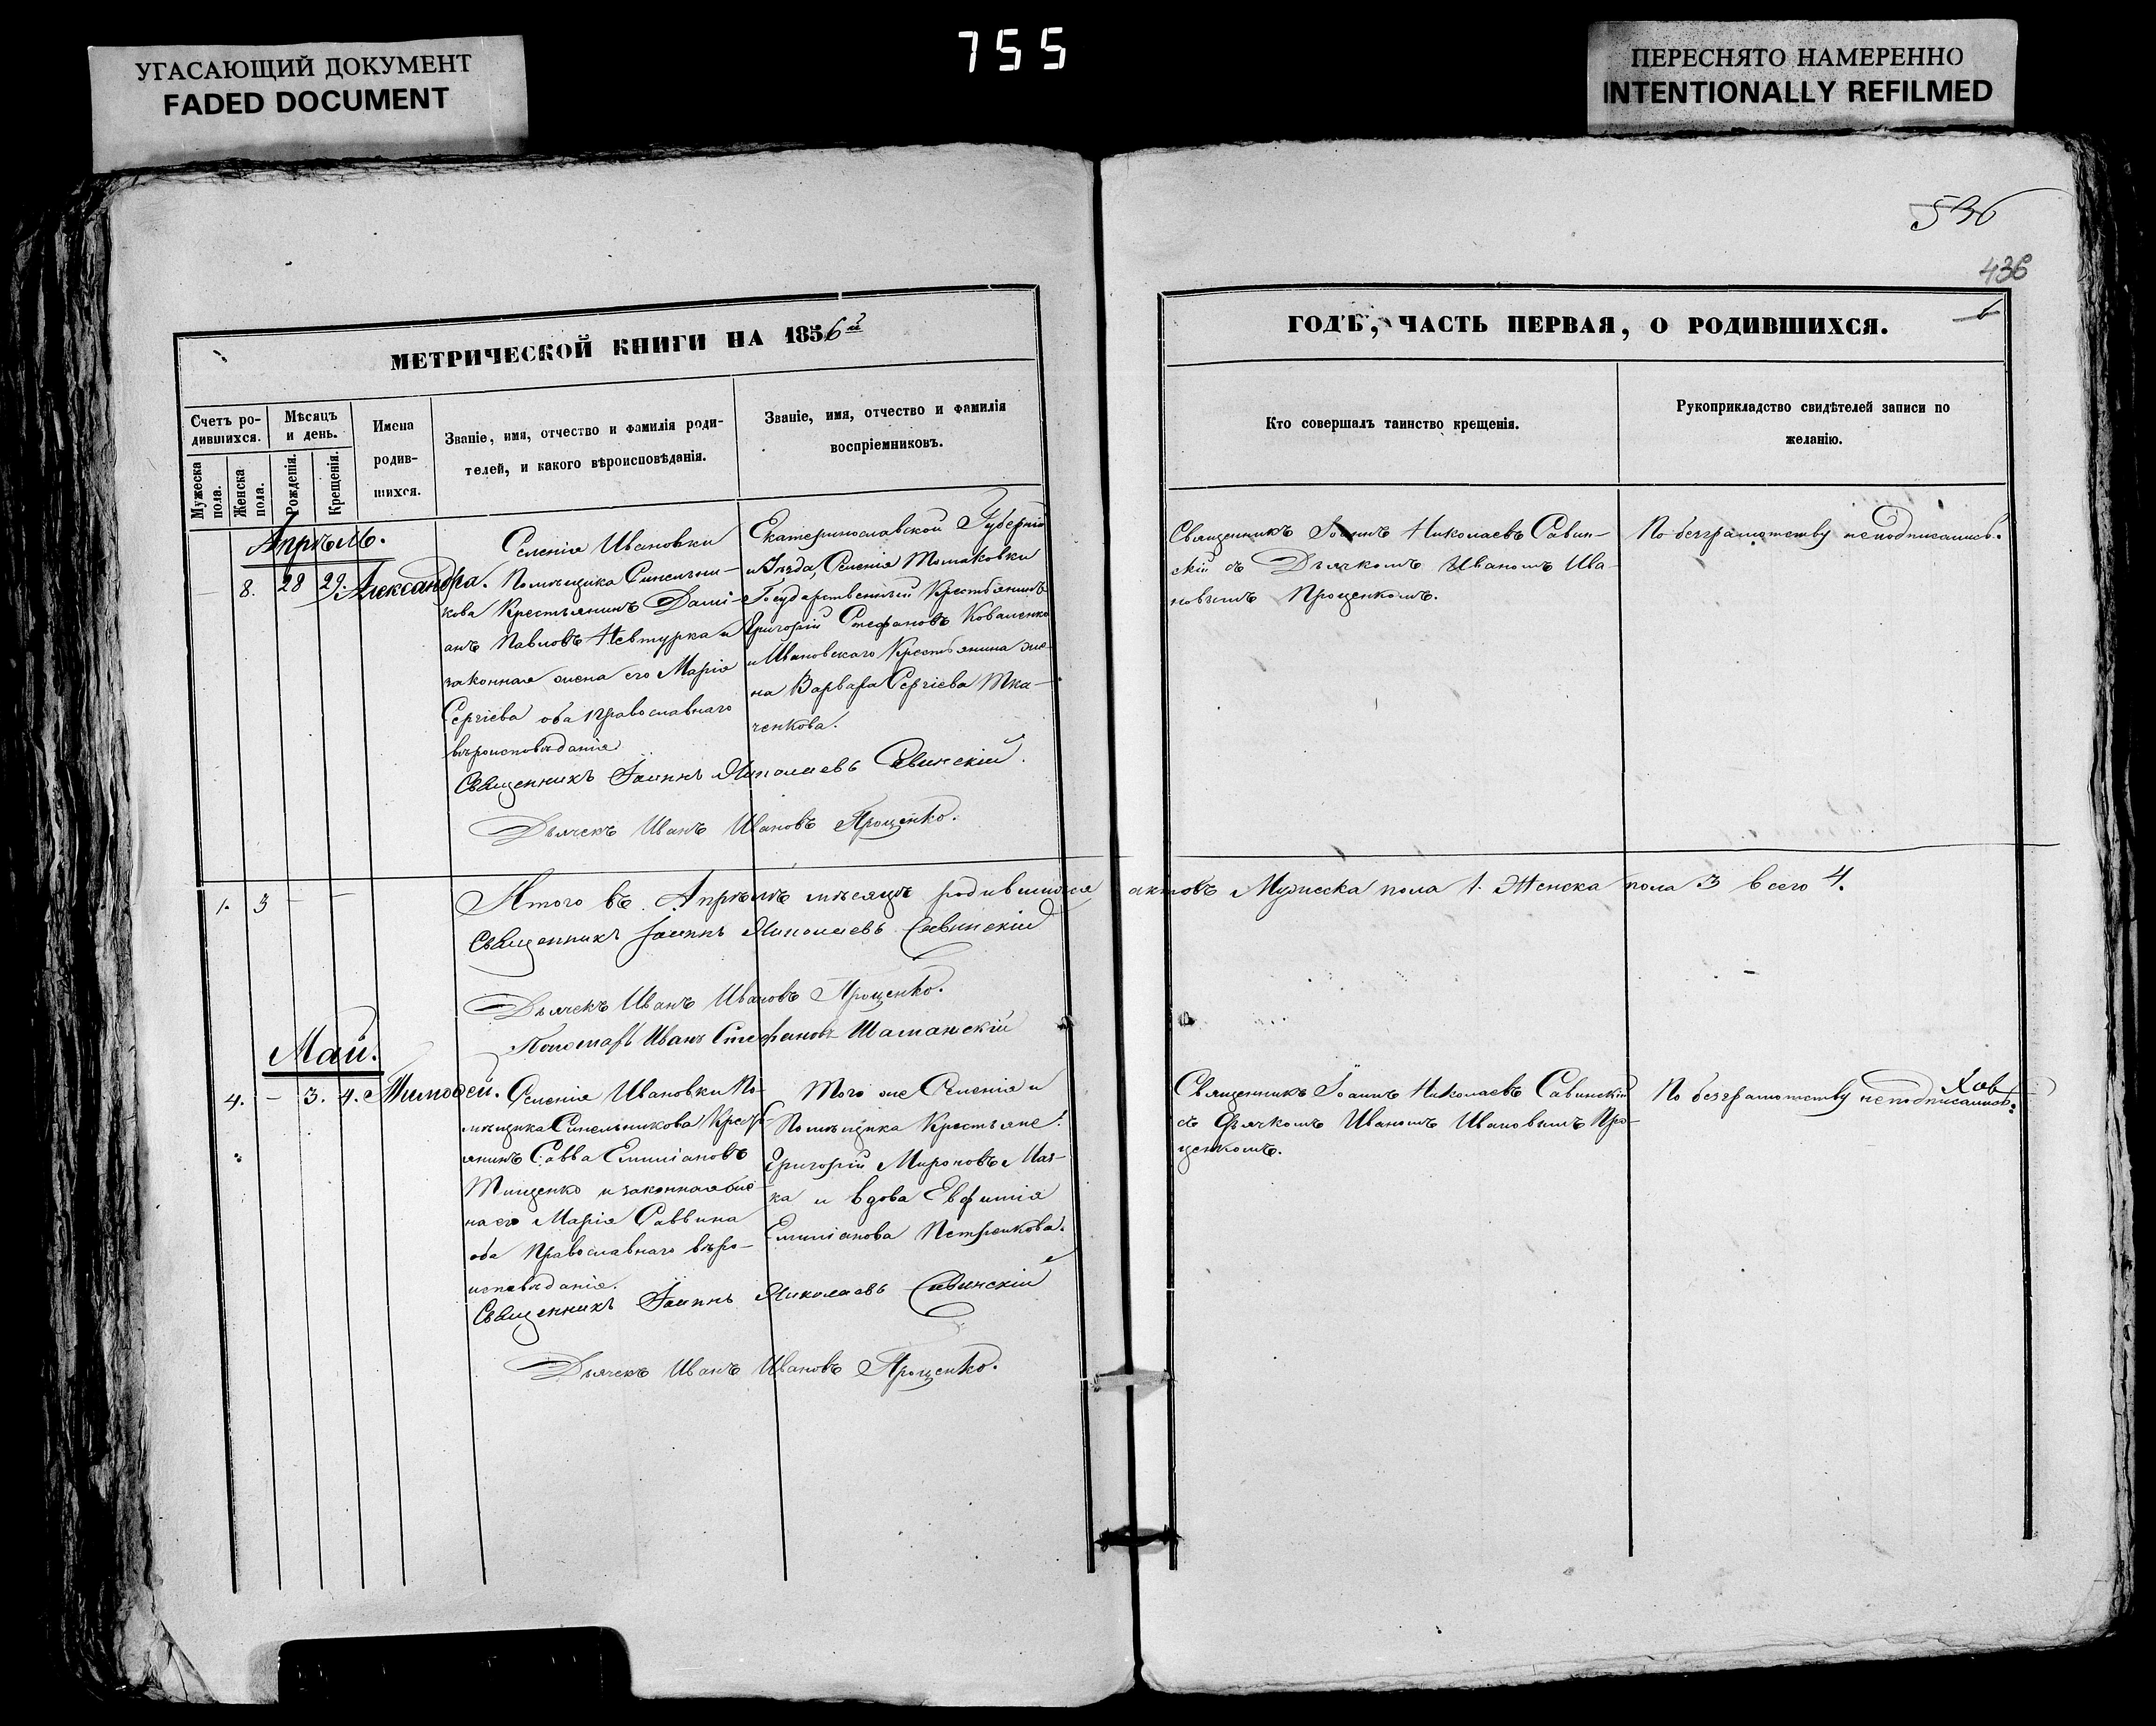 755
УГАСАЮЩИЙ ДОКУМЕНТ
FADED DOCUMENT
ПЕРЕСНЯТО НАМЕРЕННО
INTENTIONALLY REFILMED
536
436
МЕТРИЧЕСКОЙ КНИГИ НА 1856й
Счетъ ро-
дившихся.
Мѣсяцъ
и день.
Имена
родив-
шихся.
Мужеска
пола.
Женска
пола.
Рожденія.
Крещенія.
Званіе, имя, отчество и фамилія роди-
телей, и какого вѣроисповѣданія.
Званіе, имя, отчество и фамилія
воспріемниковъ.
Апрѣль.
— 8. 28 29. Александра.
Селенія Ивановки
Помѣщика Синельни-
кова Крестьянинъ Дамі-
анъ Павловъ Невтурка и
законная жена его Марія
Сергіева оба Православнаго
вѣроисповѣданія
Екатеринославской Губерніи
и Уѣзда, Селенія Томаковки
Государственный Крестьянинъ
Григорій Стефановъ Коваленко
и Ивановскаго Крестьянина же-
на Варвара Сергіева Тка-
ченкова.
Священникъ Іоаннъ Николаевъ Савинскій.
Дьячекъ Иванъ Ивановъ Проценко.
1. 3 — —
Итого въ Апрѣлѣ мѣсяцѣ родившихся актовъ Мужеска пола 1. Женска пола 3 всего 4.
Священникъ Іоаннъ Николаевъ Савинскій
Дьячекъ Иванъ Ивановъ Проценко.
Пономарь Иванъ Стефановъ Шаманскій
Май.
4. — 3. 4. Тимофей.
Селенія Ивановки По-
мѣщика Синельникова Кресть-
янинъ Савва Емиліановъ
Тищенко и законная же-
на его Марія Саввина
оба Православнаго вѣро-
исповѣданія.
Того же Селенія и
Помѣщика Крестьяне:
Григорій Мироновъ
ка и вдова Евфимія
Емиліанова Петренкова.
Священникъ Іоаннъ Николаевъ Савинскій
Дьячекъ Иванъ Ивановъ Проценко.
ГОДЪ, ЧАСТЬ ПЕРВАЯ, О РОДИВШИХСЯ.
Кто совершалъ таинство крещенія.
Рукоприкладство свидѣтелей записи по
желанію.
Священникъ Іоаннъ Николаевъ Савин-
скій съ Дьячкомъ Иваномъ Ива-
новымъ Проценкомъ.
По безграмотству неподписались.
Священникъ Іоаннъ Николаевъ Савинскій
съ Дьячкомъ Иваномъ Ивановымъ Про-
ценкомъ.
По безграмотству неподписались.